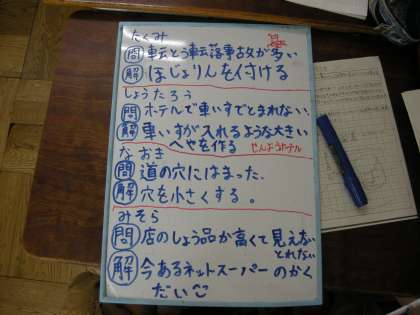 たくみ
問 車転とう転落事故が多い
解 ほじょりんを付ける
しょうたろう
問 ホテルで車いすでとまれない
解 車いすが入れるような大きい
へやを作る
なおき
問 道の穴にはまった.
解 穴を小さくする。
みそら
問 店のしょう品が高くて見えない
とれない
解 今あるネットスーパーのかく
だい